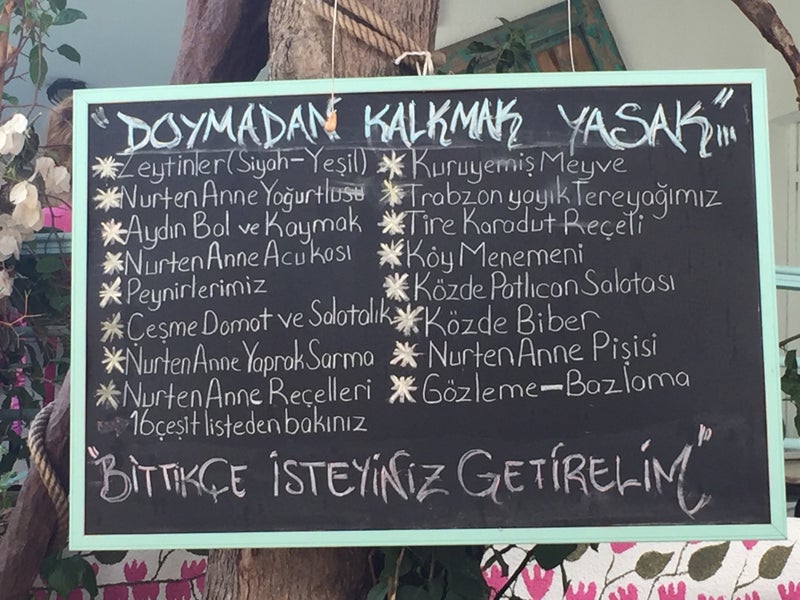 "DOYMADAN KALKMAK YASAK"...
Zeytinler (Siyah-Yeşil)
Nurten Anne Yoğurtlusu
Aydın Bal ve Kaymak
Nurten Anne Acukası
Peynirlerimiz
Çeşme Domat ve Salatalık
Nurten Anne Yaprak Sarma
Nurten Anne Reçelleri
16 çeşit listeden bakınız
Kuruyemiş Meyve
Trabzon yayık Tereyağımız
Tire Karadut Reçeli
Köy Menemeni
Közde Patlıcan Salatası
Közde Biber
Nurten Anne Pişisi
Gözleme-Bazlama
"BİTTİKÇE İSTEYİNİZ GETİRELİM"